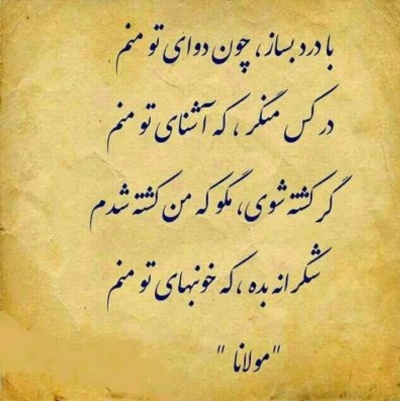 با درد بساز، چون دوای تو منم
در کس منگر، که آشنای تو منم
گر کشته شوی، مگو که من کشته شدم
شکرانه بده، که خونبهای تو منم
"مولانا"